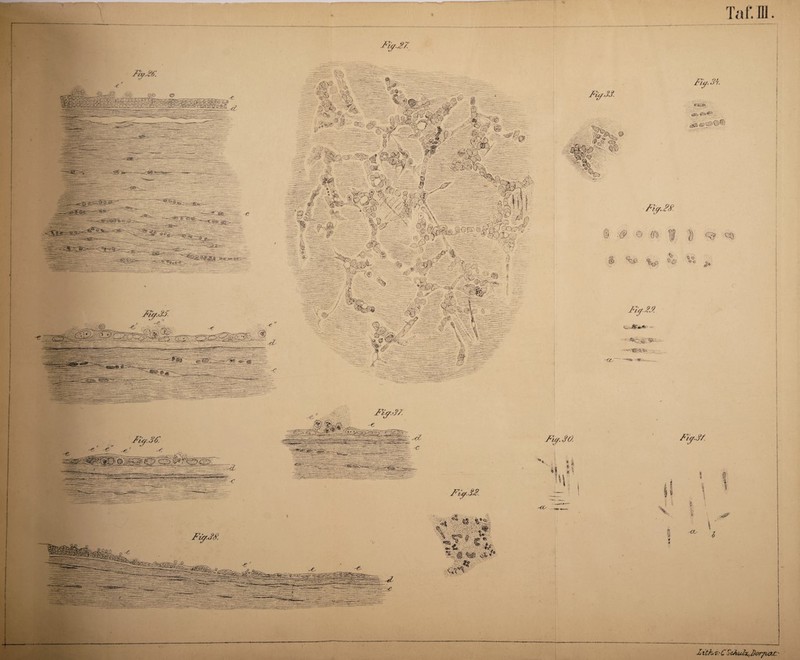 Taf. III.
Fig. 27.
Fig. 26.
Fig. 34.
Fig. 33.
e
d
c
Fig. 28.
Fig. 35.
Fig. 29.
e
d
c
a
Fig. 37.
e
d
c
Fig. 36.
Fig. 30.
Fig. 31.
e
d
c
Fig. 32.
a
a
b
Fig. 38.
e
d
c
Lith. v. C. Schulz, Dorpat